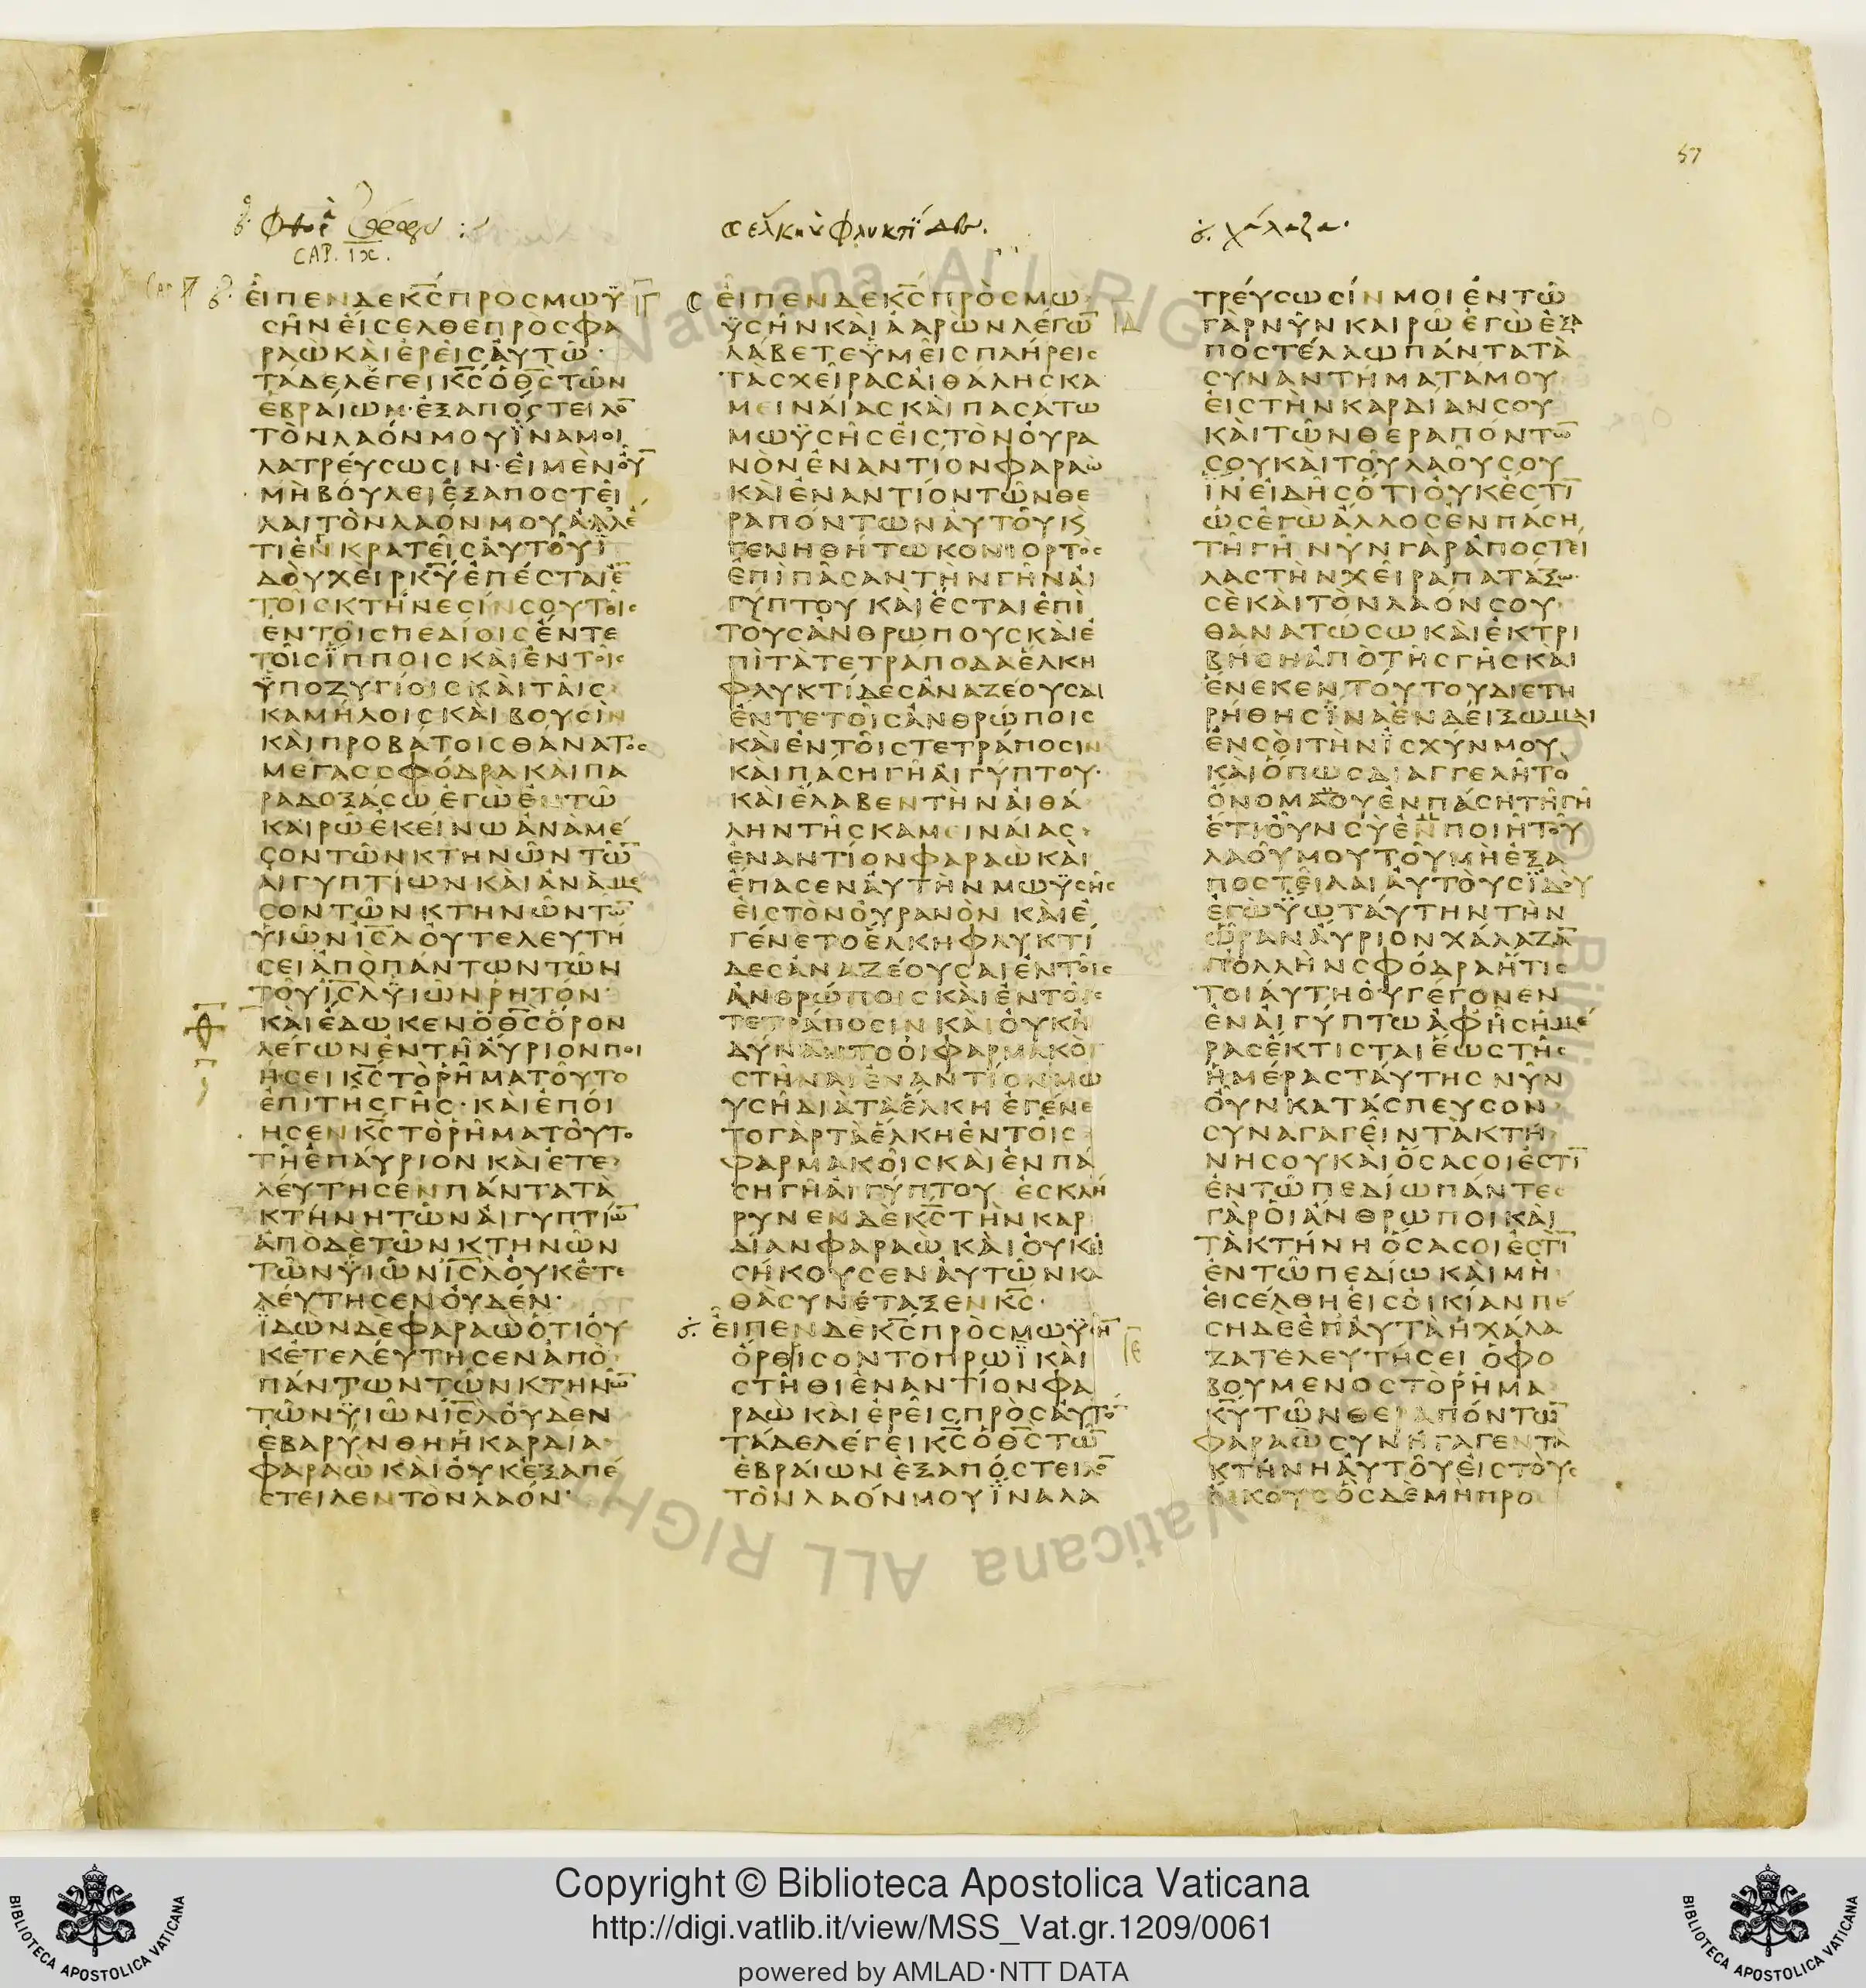 57
CAP. IX.
ΕΙΠΕΝΔΕΚ̅Σ̅ΠΡΟΣΜΩΫ
ΣΗΝΕΙΣΕΛΘΕΠΡΟΣΦΑ
ΡΑΩΚΑΙΕΡΕΙΣΑΥΤΩ·
ΤΑΔΕΛΕΓΕΙΚ̅Σ̅ΟΘ̅Σ̅ΤΩΝ
ΕΒΡΑΙΩΝ·ΕΞΑΠΟΣΤΕΙΛΟ̅
ΤΟΝΛΑΟΝΜΟΥΪΝΑΜΟΙ
ΛΑΤΡΕΥΣΩΣΙΝ·ΕΙΜΕΝΟΥ̅
ΜΗΒΟΥΛΕΙΕΞΑΠΟΣΤΕΙ
ΛΑΙΤΟΝΛΑΟΝΜΟΥΑΛΛΕ
ΤΙΕΝΚΡΑΤΕΙΣΑΥΤΟΥΪ
ΔΟΥΧΕΙΡΚ̅Υ̅ΕΠΕΣΤΑΙΕ̅
ΤΟΙΣΚΤΗΝΕΣΙΝΣΟΥΤΟΙΣ
ΕΝΤΟΙΣΠΕΔΙΟΙΣΕΝΤΕ
ΤΟΙΣΪΠΠΟΙΣΚΑΙΕΝΤΟΙΣ
ΫΠΟΖΥΓΙΟΙΣΚΑΙΤΑΙΣ
ΚΑΜΗΛΟΙΣΚΑΙΒΟΥΣΙΝ
ΚΑΙΠΡΟΒΑΤΟΙΣΘΑΝΑΤΟΣ
ΜΕΓΑΣΣΦΟΔΡΑΚΑΙΠΑ
ΡΑΔΟΞΑΣΩΕΓΩΕΝΤΩ
ΚΑΙΡΩΕΚΕΙΝΩΑΝΑΜΕ
ΣΟΝΤΩΝΚΤΗΝΩΝΤΩ̅
ΑΙΓΥΠΤΙΩΝΚΑΙΑΝΑΜΕ
ΣΟΝΤΩΝΚΤΗΝΩΝΤΩ̅
ΥΙΩΝΙ̅Σ̅Λ̅ΟΥΤΕΛΕΥΤΗ
ΣΕΙΑΠΟΠΑΝΤΩΝΤΩΝ
ΤΟΥΙ̅Σ̅Λ̅ΫΙΩΝΡΗΤΟΝ
ΚΑΙΕΔΩΚΕΝΟΘ̅Σ̅ΟΡΟΝ
ΛΕΓΩΝΕΝΤΗΑΥΡΙΟΝΠΟΙ
ΗΣΕΙΚ̅Σ̅ΤΟΡΗΜΑΤΟΥΤΟ
ΕΠΙΤΗΣΓΗΣ·ΚΑΙΕΠΟΙ
ΗΣΕΝΚ̅Σ̅ΤΟΡΗΜΑΤΟΥΤΟ
ΤΗΕΠΑΥΡΙΟΝΚΑΙΕΤΕ
ΛΕΥΤΗΣΕΝΠΑΝΤΑΤΑ
ΚΤΗΝΗΤΩΝΑΙΓΥΠΤΙΩ̅
ΑΠΟΔΕΤΩΝΚΤΗΝΩΝ
ΤΩΝΫΙΩΝΙ̅Σ̅Λ̅ΟΥΚΕΤΕ
ΛΕΥΤΗΣΕΝΟΥΔΕΝ·
ΪΔΩΝΔΕΦΑΡΑΩΟΤΙΟΥ
ΚΕΤΕΛΕΥΤΗΣΕΝΑΠΟ
ΠΑΝΤΩΝΤΩΝΚΤΗΝΩ̅
ΤΩΝΫΙΩΝΙ̅Σ̅Λ̅ΟΥΔΕΝ
ΕΒΑΡΥΝΘΗΗΚΑΡΔΙΑ
ΦΑΡΑΩΚΑΙΟΥΚΕΞΑΠΕ
ΣΤΕΙΛΕΝΤΟΝΛΑΟΝ·
ΕΙΠΕΝΔΕΚ̅Σ̅ΠΡΟΣΜΩ
ΫΣΗΝΚΑΙΑΑΡΩΝΛΕΓΩ̅
ΛΑΒΕΤΕΫΜΕΙΣΠΛΗΡΕΙΣ
ΤΑΣΧΕΙΡΑΣΑΙΘΑΛΗΣΚΑ
ΜΕΙΝΑΙΑΣΚΑΙΠΑΣΑΤΩ
ΜΩΫΣΗΣΕΙΣΤΟΝΟΥΡΑ
ΝΟΝΕΝΑΝΤΙΟΝΦΑΡΑΩ
ΚΑΙΕΝΑΝΤΙΟΝΤΩΝΘΕ
ΡΑΠΟΝΤΩΝΑΥΤΟΥΚΑΙ
ΓΕΝΗΘΗΤΩΚΟΝΙΟΡΤΟΣ
ΕΠΙΠΑΣΑΝΤΗΝΓΗΝΑΙ
ΓΥΠΤΟΥ ΚΑΙΕΣΤΑΙΕΠΙ
ΤΟΥΣΑΝΘΡΩΠΟΥΣΚΑΙΕ
ΠΙΤΑΤΕΤΡΑΠΟΔΑΕΛΚΗ
ΦΛΥΚΤΙΔΕΣΑΝΑΖΕΟΥΣΑΙ
ΕΝΤΕΤΟΙΣΑΝΘΡΩΠΟΙΣ
ΚΑΙΕΝΤΟΙΣΤΕΤΡΑΠΟΣΙΝ
ΚΑΙΠΑΣΗΓΗΑΙΓΥΠΤΟΥ·
ΚΑΙΕΛΑΒΕΝΤΗΝΑΙΘΑ
ΛΗΝΤΗΣΚΑΜΕΙΝΑΙΑΣ
ΕΝΑΝΤΙΟΝΦΑΡΑΩΚΑΙ
ΕΠΑΣΕΝΑΥΤΗΝΜΩΫΣΗΣ
ΕΙΣΤΟΝΟΥΡΑΝΟΝ ΚΑΙΕ
ΓΕΝΕΤΟΕΛΚΗΦΛΥΚΤΙ
ΔΕΣΑΝΑΖΕΟΥΣΑΙΕΝΤΟΙΣ
ΑΝΘΡΩΠΟΙΣΚΑΙΕΝΤΟΙΣ
ΤΕΤΡΑΠΟΣΙΝ ΚΑΙΟΥΚΗ
ΔΥΝΑΝΤΟΟΙΦΑΡΜΑΚΟΙ
ΣΤΗΝΑΙΕΝΑΝΤΙΟΝΜΩ
ΥΣΗΔΙΑΤΑΕΛΚΗ ΕΓΕΝΕ
ΤΟΓΑΡΤΑΕΛΚΗΕΝΤΟΙΣ
ΦΑΡΜΑΚΟΙΣΚΑΙΕΝΠΑ
ΣΗΓΗΑΙΓΥΠΤΟΥ ΕΣΚΛΗ
ΡΥΝΕΝΔΕΚ̅Σ̅ΤΗΝΚΑΡ
ΔΙΑΝΦΑΡΑΩ ΚΑΙΟΥΚΕΙ
ΣΗΚΟΥΣΕΝΑΥΤΩΝΚΑ
ΘΑΣΥΝΕΤΑΞΕΝΚ̅Σ̅·
ΕΙΠΕΝΔΕΚ̅Σ̅ΠΡΟΣΜΩΫΣΗ̅
ΟΡΘΙΣΟΝΤΟΠΡΩΪΚΑΙ
ΣΤΗΘΙΕΝΑΝΤΙΟΝΦΑ
ΡΑΩ ΚΑΙΕΡΕΙΣΠΡΟΣΑΥΤΟ̅
ΤΑΔΕΛΕΓΕΙΚ̅Σ̅ΟΘ̅Σ̅ΤΩ̅
ΕΒΡΑΙΩΝΕΞΑΠΟΣΤΕΙΛΟ̅
ΤΟΝΛΑΟΝΜΟΥΪΝΑΛΑ
ΤΡΕΥΣΩΣΙΝΜΟΙΕΝΤΩ
ΓΑΡΝΥΝΚΑΙΡΩΕΓΩΕΞΑ
ΠΟΣΤΕΛΛΩΠΑΝΤΑΤΑ
ΣΥΝΑΝΤΗΜΑΤΑΜΟΥ
ΕΙΣΤΗΝΚΑΡΔΙΑΝΣΟΥ
ΚΑΙΤΩΝΘΕΡΑΠΟΝΤΩ̅
ΣΟΥΚΑΙΤΟΥΛΑΟΥΣΟΥ
ΪΝΕΙΔΗΣΟΤΙΟΥΚΕΣΤΙ̅
ΩΣΕΓΩΑΛΛΟΣΕΝΠΑΣΗ
ΤΗΓΗ ΝΥΝΓΑΡΑΠΟΣΤΕΙ
ΛΑΣΤΗΝΧΕΙΡΑΠΑΤΑΞΩ
ΣΕΚΑΙΤΟΝΛΑΟΝΣΟΥ
ΘΑΝΑΤΩΣΩ ΚΑΙΕΚΤΡΙ
ΒΗΣΗΑΠΟΤΗΣΓΗΣΚΑΙ
ΕΝΕΚΕΝΤΟΥΤΟΥΔΙΕΤΗ
ΡΗΘΗΣΪΝΑΕΝΔΕΙΞΩΜΑΙ
ΕΝΣΟΙΤΗΝΪΣΧΥΝΜΟΥ
ΚΑΙΟΠΩΣΔΙΑΓΓΕΛΗΤΟ
ΟΝΟΜΑΜΟΥΕΝΠΑΣΗΤΗΓΗ
ΕΤΙΟΥΝΣΥΕΝΠΟΙΗΤΟΥ
ΛΑΟΥΜΟΥΤΟΥΜΗΕΞΑ
ΠΟΣΤΕΙΛΑΙΑΥΤΟΥΣΪΔΟΥ
ΕΓΩΫΩΤΑΥΤΗΝΤΗΝ
ΩΡΑΝΑΥΡΙΟΝΧΑΛΑΖΑ̅
ΠΟΛΛΗΝΣΦΟΔΡΑΗΤΙΣ
ΤΟΙΑΥΤΗΟΥΓΕΓΟΝΕΝ
ΕΝΑΙΓΥΠΤΩΑΦΗΣΗΜΕ
ΡΑΣΕΚΤΙΣΤΑΙΕΩΣΤΗΣ
ΗΜΕΡΑΣΤΑΥΤΗΣ ΝΥΝ
ΟΥΝΚΑΤΑΣΠΕΥΣΟΝ
ΣΥΝΑΓΑΓΕΙΝΤΑΚΤΗ
ΝΗΣΟΥΚΑΙΟΣΑΣΟΙΕΣΤΙ̅
ΕΝΤΩΠΕΔΙΩΠΑΝΤΕΣ
ΓΑΡΟΙΑΝΘΡΩΠΟΙΚΑΙ
ΤΑΚΤΗΝΗ ΟΣΑΣΟΙΕΣΤΙ̅
ΕΝΤΩΠΕΔΙΩΚΑΙΜΗ
ΕΙΣΕΛΘΗΕΙΣΟΙΚΙΑΝΠΕ
ΣΗΔΕΕΠΑΥΤΑΗΧΑΛΑ
ΖΑΤΕΛΕΥΤΗΣΕΙ ΟΦΟ
ΒΟΥΜΕΝΟΣΤΟΡΗΜΑ
Κ̅Υ̅ΤΩΝΘΕΡΑΠΟΝΤΩ̅
ΦΑΡΑΩΣΥΝΗΓΑΓΕΝΤΑ
ΚΤΗΝΗΑΥΤΟΥΕΙΣΤΟΥΣ
ΟΙΚΟΥΣΟΣΔΕΜΗΠΡΟ
Copyright © Biblioteca Apostolica Vaticana
http://digi.vatlib.it/view/MSS_Vat.gr.1209/0061
powered by AMLAD·NTT DATA
BIBLIOTECA APOSTOLICA VATICANA
BIBLIOTECA APOSTOLICA VATICANA